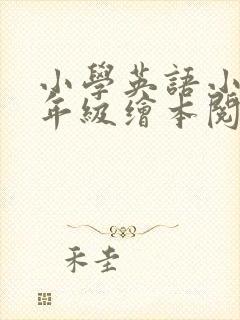 小學英語小
年級繪本閱
禾圭